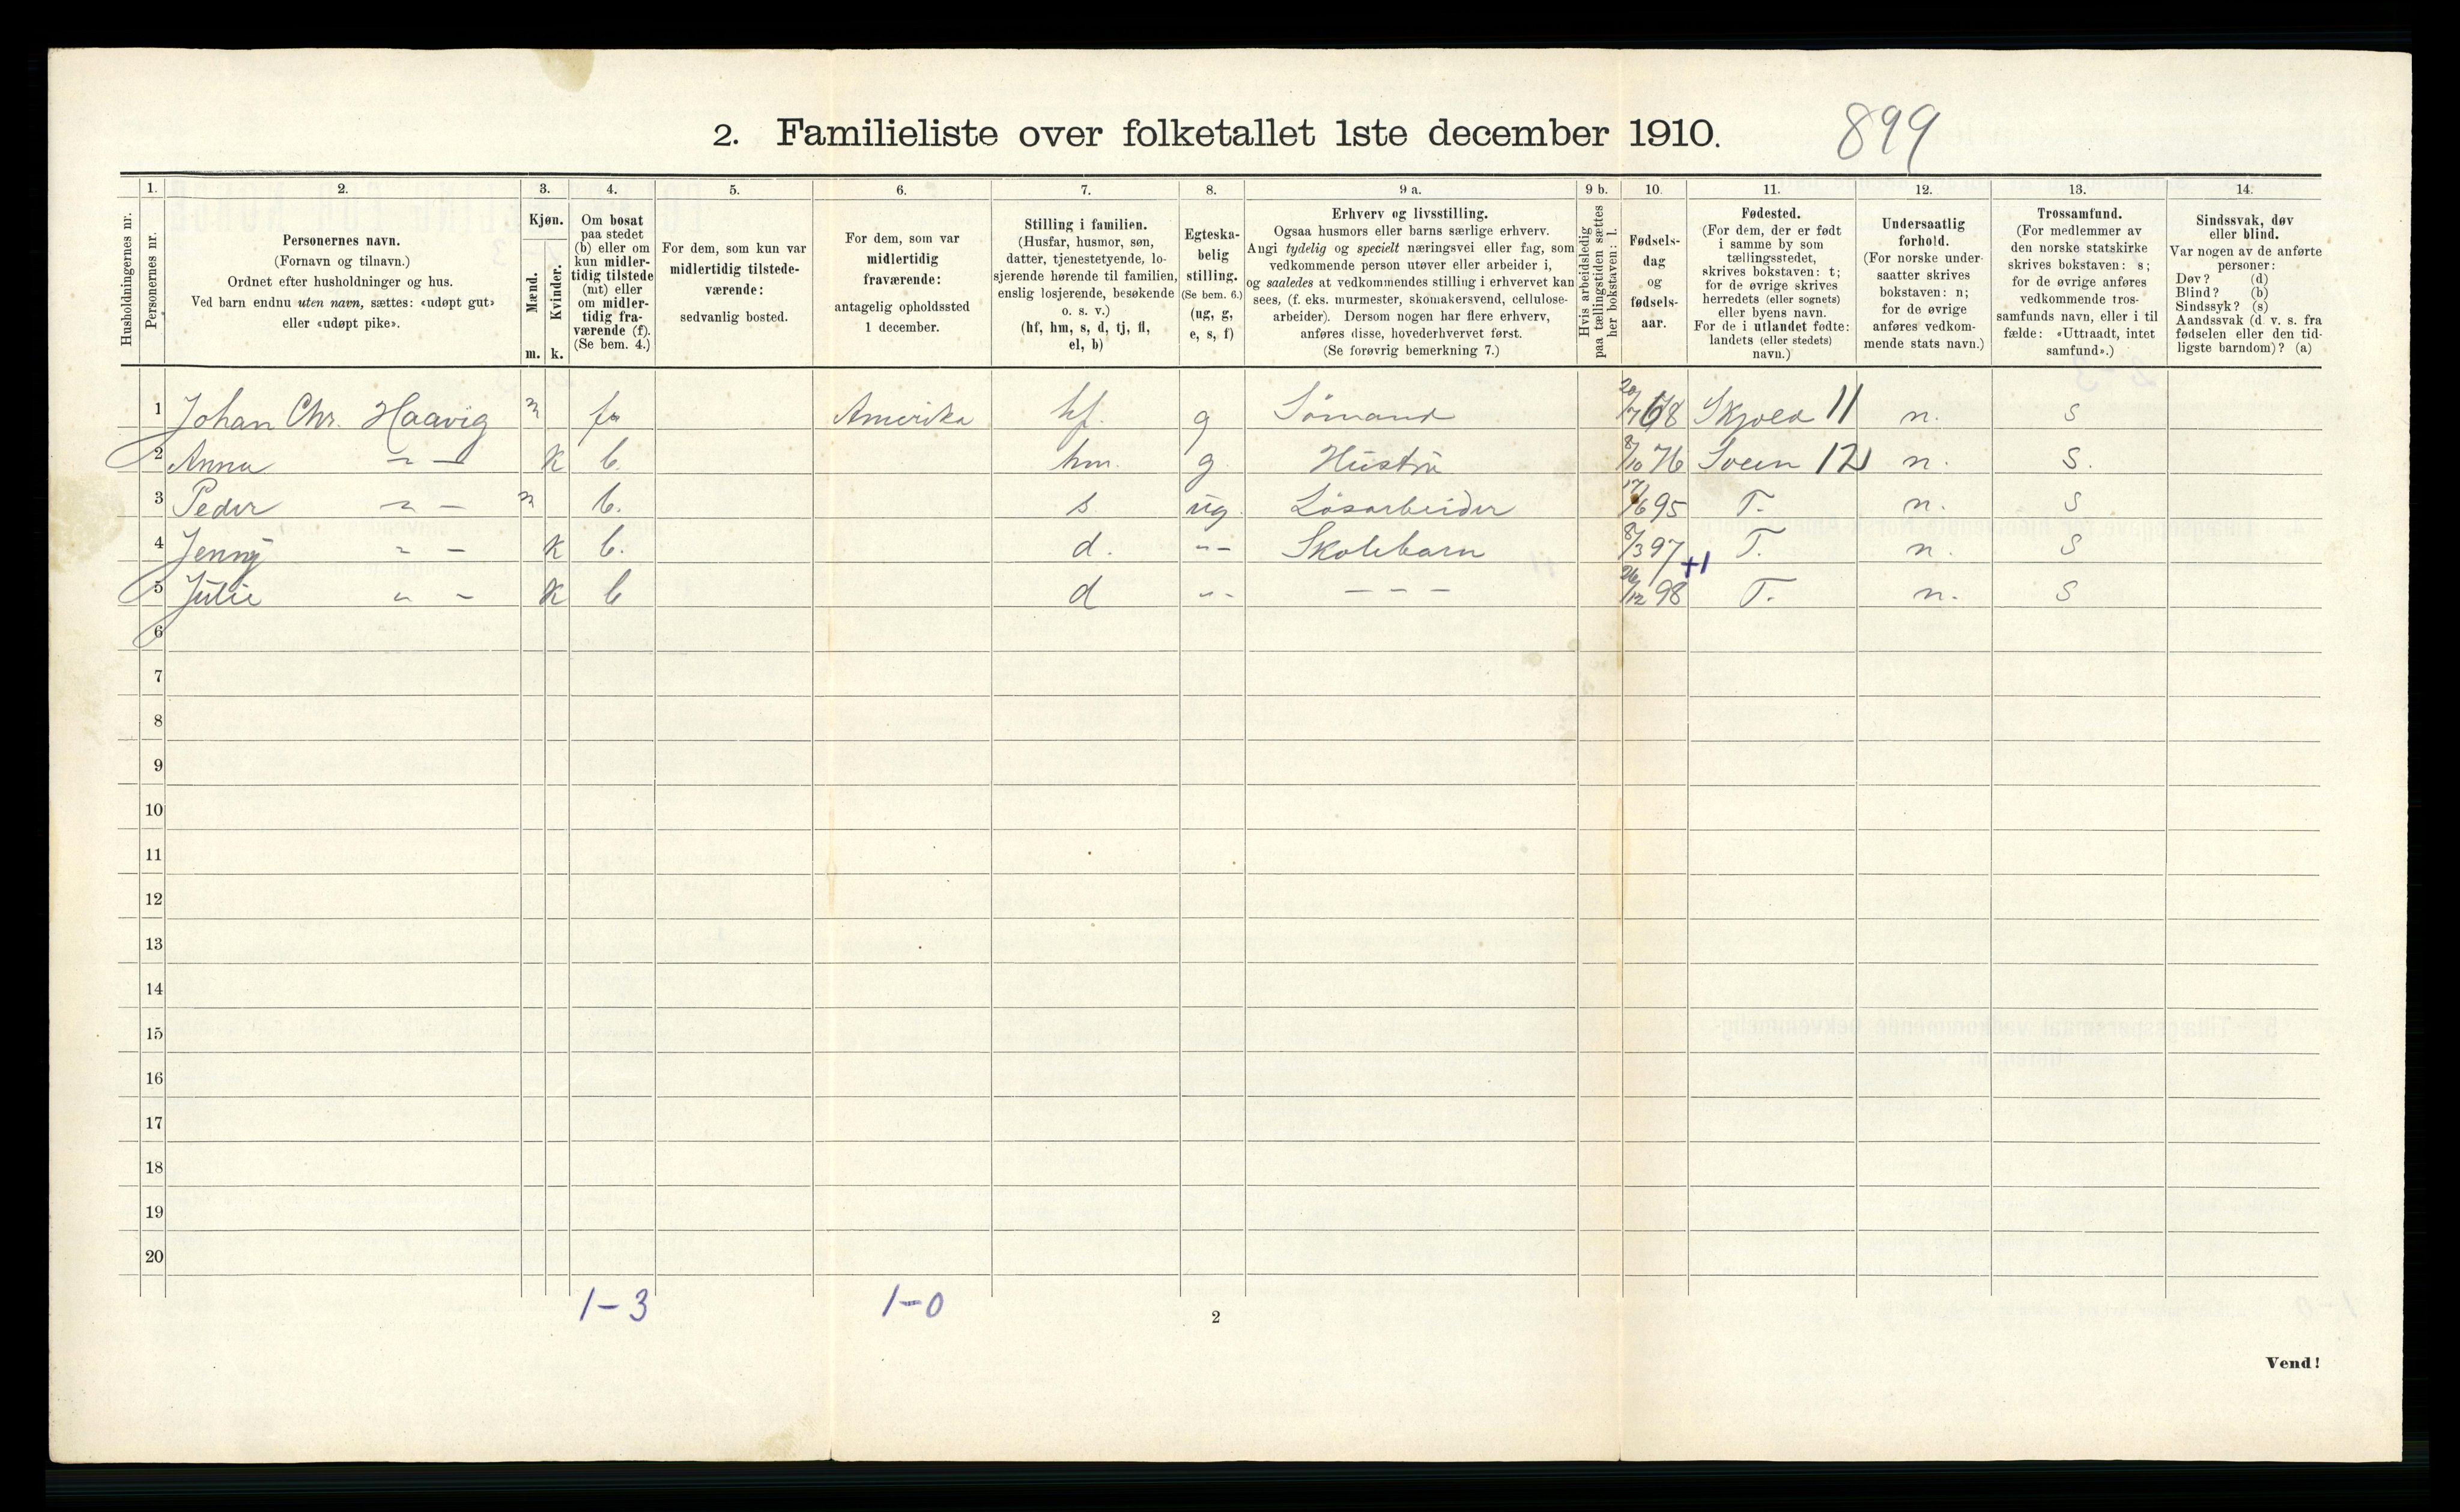 2. Familieliste over folketallet 1ste december 1910. 899
Husholdningernes nr.
1. Personernes nr.
2. Personernes navn.
(Fornavn og tilnavn.)
Ordnet efter husholdninger og hus.
Ved barn endnu uten navn, sættes: «udøpt gut»
eller «udøpt pike».
3. Kjøn.
Mænd. m.
Kvinder. k.
4. Om bosat
paa stedet
(b) eller om
kun midler-
tidig tilstede
(mt) eller
om midler-
tidig fra-
værende (f).
(Se bem. 4.)
5. For dem, som kun var
midlertidig tilstede-
værende:
sedvanlig bosted.
6. For dem, som var
midlertidig
fraværende:
antagelig opholdssted
1 december.
7. Stilling i familien.
(Husfar, husmor, søn,
datter, tjenestetyende, lo-
sjerende hørende til familien,
enslig losjerende, besøkende
o. s. v.)
(hf, hm, s, d, tj, fl,
el, b)
8. Egteska-
belig
stilling.
(Se bem. 6.)
(ug, g,
e, s, f)
9 a. Erhverv og livsstilling.
Ogsaa husmors eller barns særlige erhverv.
Angi tydelig og specielt næringsvei eller fag, som
vedkommende person utøver eller arbeider i,
og saaledes at vedkommendes stilling i erhvervet kan
sees, (f. eks. murmester, skomakersvend, cellulose-
arbeider). Dersom nogen har flere erhverv,
anføres disse, hovederhvervet først.
(Se forøvrig bemerkning 7.)
9 b. Hvis arbeidsledig
paa tællingstiden sættes
her bokstaven: l.
10. Fødsels-
dag
og
fødsels-
aar.
11. Fødested.
(For dem, der er født
i samme by som
tællingsstedet,
skrives bokstaven: t;
for de øvrige skrives
herredets (eller sognets)
eller byens navn.
For de i utlandet fødte:
landets (eller stedets)
navn.)
12. Undersaatlig
forhold.
(For norske under-
saatter skrives
bokstaven: n;
for de øvrige
anføres vedkom-
mende stats navn.)
13. Trossamfund.
(For medlemmer av
den norske statskirke
skrives bokstaven: s;
for de øvrige anføres
vedkommende tros-
samfunds navn, eller i til
fælde: «Uttraadt, intet
samfund».)
14. Sindssvak, døv
eller blind.
Var nogen av de anførte
personer:
Døv? (d)
Blind? (b)
Sindssyk? (s)
Aandssvak (d. v. s. fra
fødselen eller den tid-
ligste barndom)? (a)
1 Johan Chr. Haavig m f Amerika hf. g Sömand 20/7 68 Skjold 11 n. s
2 Anna " — k b. hm. g Hustru 8/10 76 Sveen 12 n. s.
3 Peder " — m b. s. ug. Lösarbeider 17/6 95 T. n. s
4 Jenny " — k b. d. " – Skolebarn 8/3 97 +1 T. n. s
5 Julie " — k b d " – – – – 26/12 98 T. n. s
6
7
8
9
10
11
12
13
14
15
16
17
18
19
20
1–3 1–0
2
Vend!